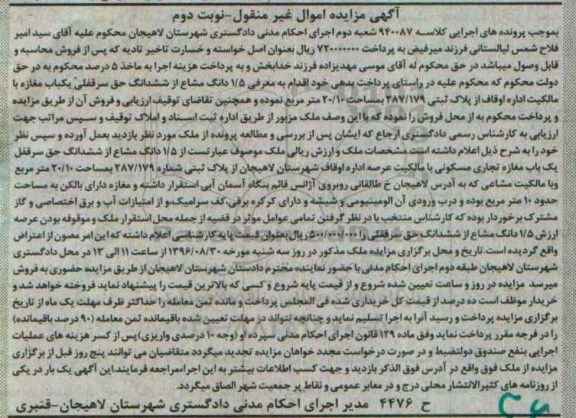 آگهی مزایده اموال غیر منقول-نوبت دوم
بموجب پرونده های اجرایی کلاسه ۹۴۰۰۸۷ شعبه دوم اجرای احکام مدنی دادگستری شهرستان لاهیجان محکوم علیه آقای سید امیر
فلاح شمس لیالستانی فرزند میرفیض به پرداخت ۷۲۰۰۰۰۰۰۰ ریال بعنوان اصل خواسته و خسارت تاخیر تادیه که پس از فروش محاسبه و
قابل وصول میباشد در حق محکوم له آقای موسی مهدیزاده فرزند خدابخش و به پرداخت هزینه اجرا به ماخذ ۵ درصد محکوم به در حق
دولت محکوم که محکوم علیه در راستای پرداخت بدهی خود اقدام به معرفی ۱/۵ دانگ مشاع از ششدانگ حق سرقفلی یکباب مغازه با
مالکیت اداره اوقاف از پلاک ثبتی ۲۸۷/۱۷۹ بمساحت ۲۰/۱۰ متر مربع نموده و همچنین تقاضای توقیف ارزیابی و فروش آن از طریق مزایده
و پرداخت محکوم به از محل فروش را نموده که با این وصف ملک مزبور از طریق اداره ثبت اسناد و املاک توقیف و سپس مراتب جهت
ارزیابی به کارشناس رسمی دادگستری ارجاع که ایشان پس از بررسی و مطالعه پرونده از ملک مورد نظر بازدید بعمل آورده و سپس نظر
خود را به شرح ذیل اعلام داشته است مشخصات ملک و ارزش ریالی ملک موصوف عبارتست از ۱/۵ دانگ مشاع از ششدانگ حق سرقفل
یک باب مغازه تجاری مسکونی با مالکیت عرصه اداره اوقاف شهرستان لاهیجان از پلاک ثبتی شماره ۲۸۷/۱۷۹ بمساحت ۲۰/۱۰ متر مربع
وبا مالکیت مشاعی که به آدرس لاهیجان خ طالقانی روبروی آژانس قائم بنگاه آسمان آبی استقرار داشته و مغازه دارای بالکن به مساحت
حدود ۱۰ متر مربع بوده و درب ورودی آن آلومینیومی و شیشه و دارای کرکره برقی،کف سرامیک،و از امتیازات آب و برق اختصاصی و گاز
مشترک برخوردار بوده که کارشناس منتخب با در نظر گرفتن تمامی عوامل موثر در قضیه از جمله محل استقرار ملک و موقوفه بودن عرصه
ارزش ۱/۵ دانگ مشاع از ششدانگ حق سرقفلی را ۵۰۰/۰۰۰/۰۰۰ ریال بعنوان قیمت پایه کارشناسی اعلام داشته که این امر مصون از اعتراض
واقع گردیده است. تاریخ و محل برگزاری مزایده ملک مذکور در روز سه شنبه مورخه ۱۳۹۶/۰۸/۳۰ از ساعت ۱۱ الی ۱۳ در محل دادگستری
شهرستان لاهیجان طبقه دوم اجرای احکام مدنی با حضور نماینده محترم دادستان شهرستان لاهیجان از طریق مزایده حضوری به فروش
میرسد مزایده در روز و ساعت تعیین شده شروع و از قیمت پایه شروع و کسی که بالاترین قیمت را پیشنهاد نماید فروخته خواهد شد و
خریدار موظف است ده درصد از قیمت کل خریداری شده فی المجلس پرداخت و مانده ثمن معامله را حداکثر ظرف مهلت یک ماه از تاریخ
برگزاری مزایده پرداخت و رسید آنرا به اجرا تسلیم نماید و چنانچه نتواند در مهلت تعیین شده باقیمانده ثمن معامله (۹۰ درصد باقیمانده)
را در فرجه مقرر پرداخت نماید وفق ماده ۱۳۹ قانون اجرای احکام مدنی سپرده او (وجه ۱۰ درصدی واریزی)پس از کسر هزینه های عملیات
اجرایی بنفع صندوق دولتضبط و در صورت درخواست مجدد خواهان مزایده تجدید میگردد متقاضیان می توانند پنج روز قبل از برگزاری
مزایده از ملک فوق واقع در آدرس فوق الذکر بازدید و جهت کسب اطلاعات بیشتر به این اجرا،مراجعه فرمایند.این آگهی یک بار در یکی
از روزنامه های کثیرالانتشار محلی درج و در معابر عمومی و نقاط پر جمعیت شهر الصاق میگردد.
ح ۴۴۷۶ مدیر اجرای احکام مدنی دادگستری شهرستان لاهیجان-قنبری